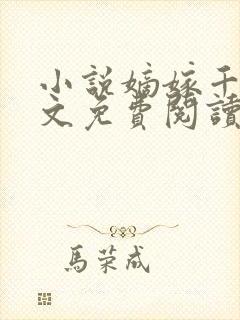 小說嫡嫁千
文免費閱讀
馬荣成